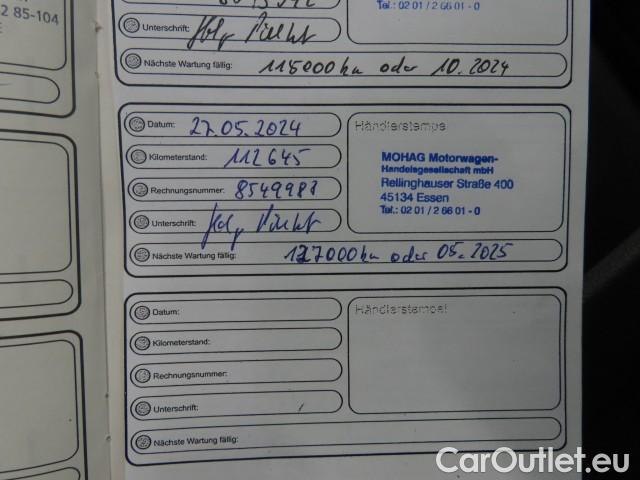 2 85-104
Tel.: 02 01 / 2 66 01 - 0
Unterschrift:
Nächste Wartung fällig: 115000 km oder 10.2024
Datum: 27.05.2024
Händlerstempel
Kilometerstand: 112645
MOHAG Motorwagen-
Handelsgesellschaft mbH
Rellinghauser Straße 400
45134 Essen
Tel.: 02 01 / 2 66 01 - 0
Rechnungsnummer: 8549981
Unterschrift:
Nächste Wartung fällig: 127000 km oder 05.2025
Datum:
Händlerstempel
Kilometerstand:
Rechnungsnummer:
Unterschrift:
Nächste Wartung fällig:
CarOutlet.eu